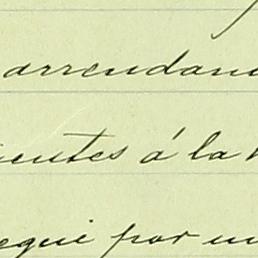 arrendan
ientes á la
egui por un